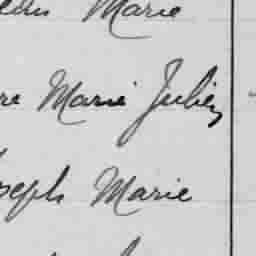 Marie
re Marie Julien
oseph Marie